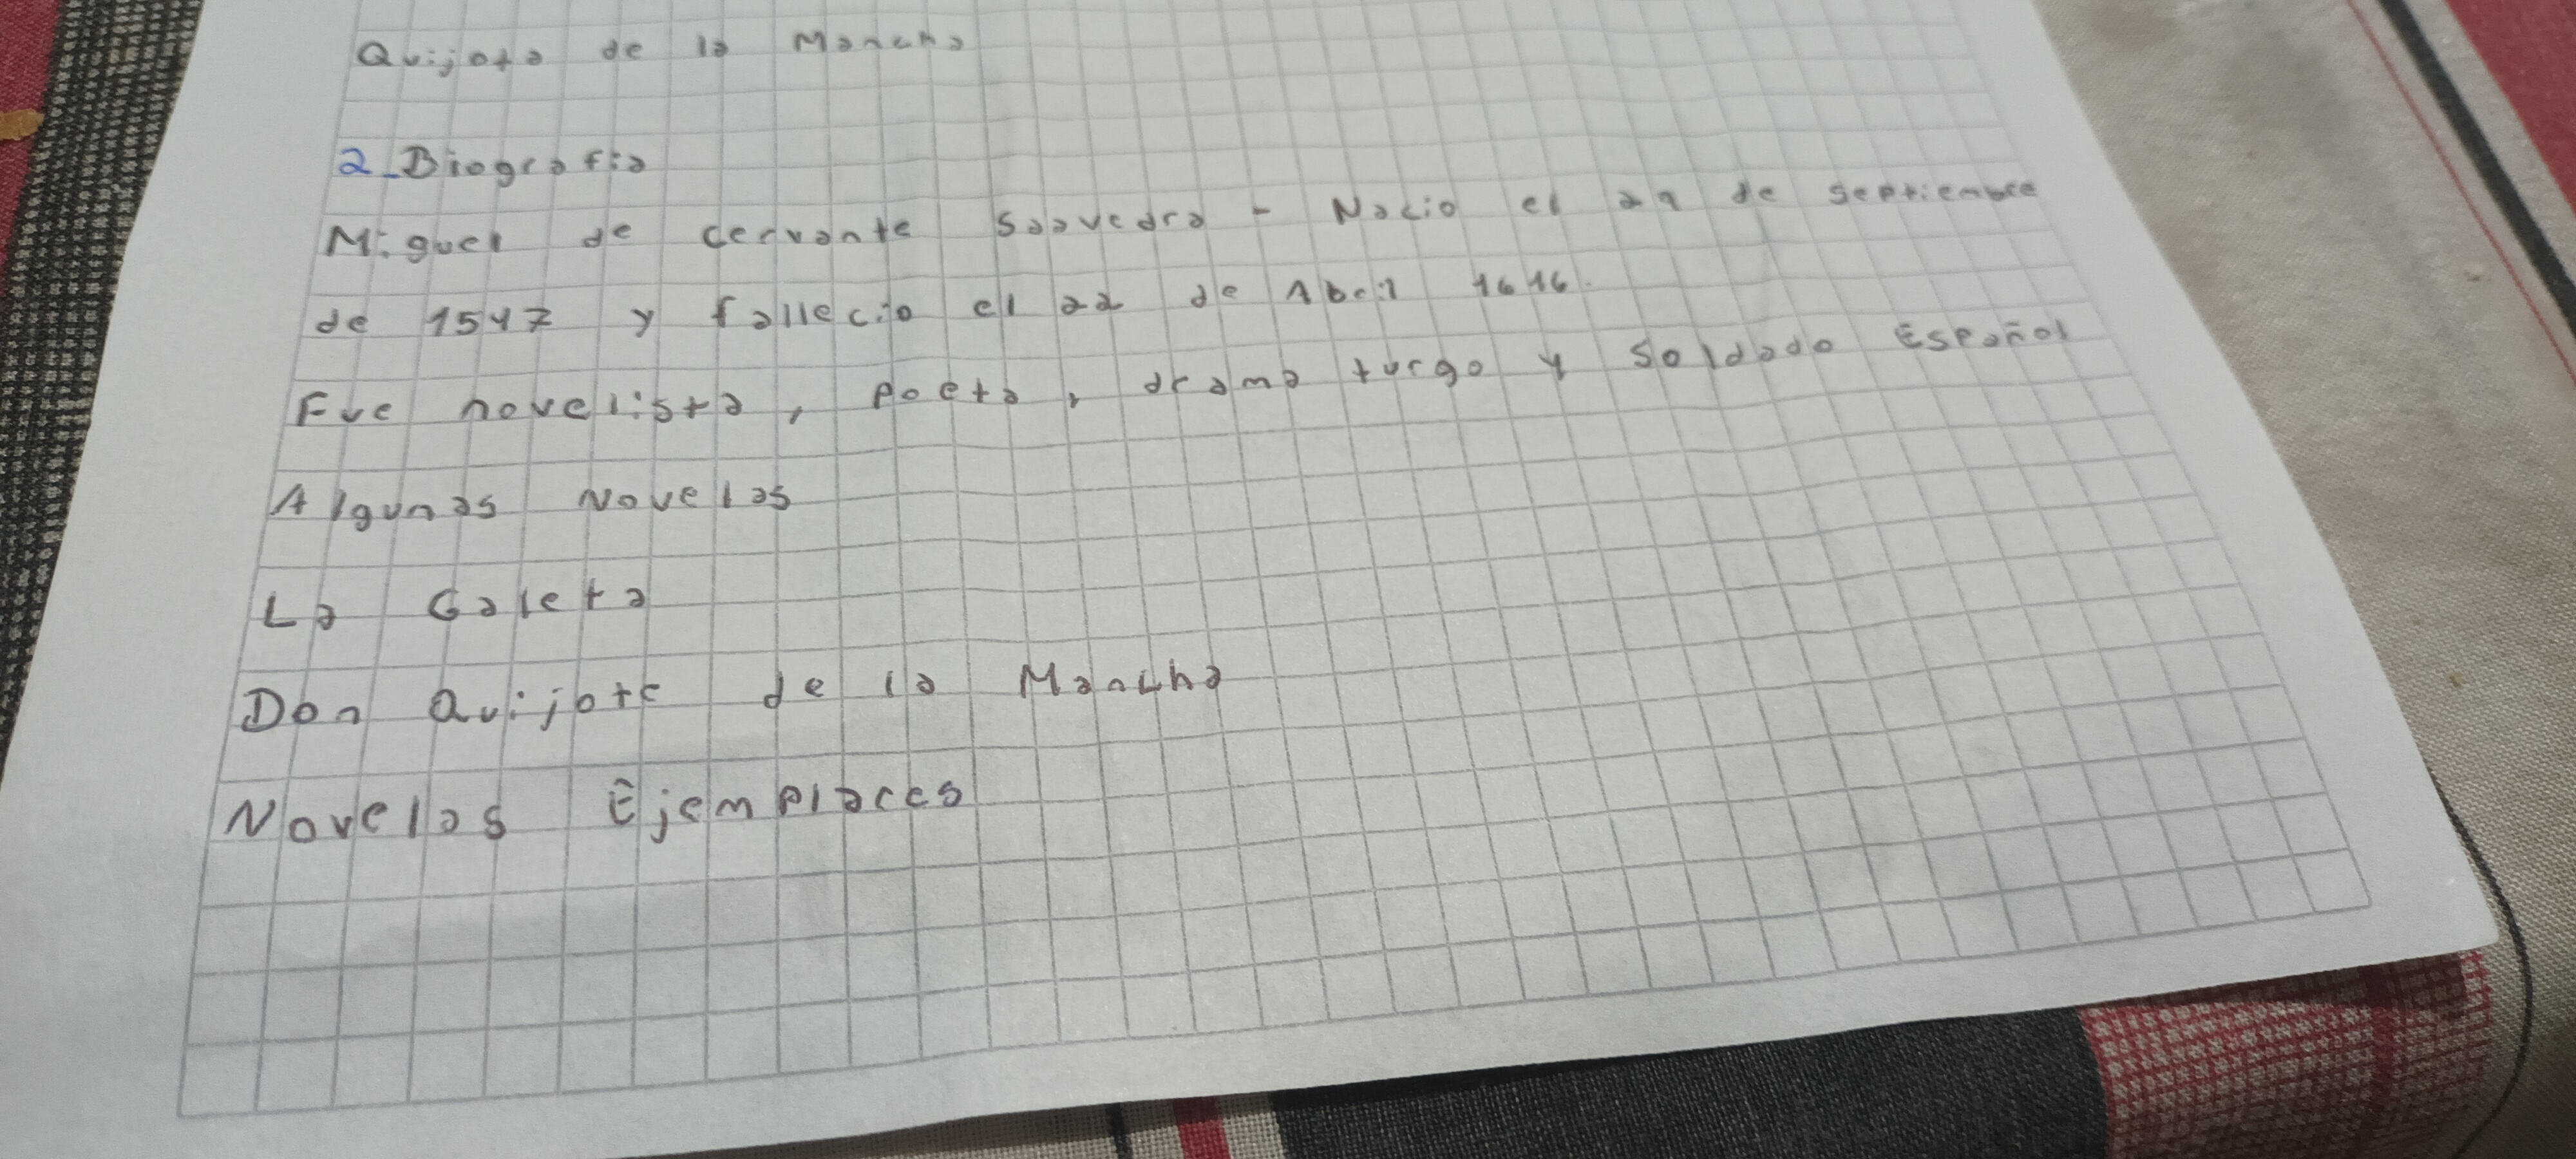 Quijota de la Mancha
2_Biografia
Miguel de cervante Saavedra - Nacio el 29 de septiembre
de 1547 y fallecio el 22 de Abril 1616.
Fue novelista, poeta, drama turgo y soldado Español
Algunas Novelas
La Galeta
Don Quijote de la Mancha
Novelas Ejemplares